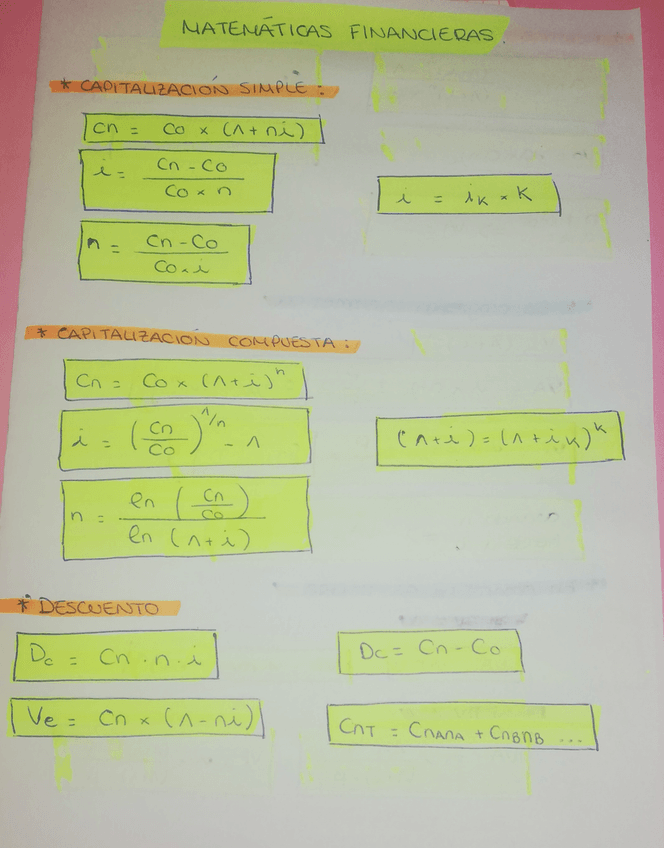 MATEMÁTICAS FINANCIERAS.
* CAPITALIZACIÓN SIMPLE:
Cn = Co x (1 + ni)
i = (Cn - Co) / (Co x n)
i = iK x K
n = (Cn - Co) / (Co . i)
* CAPITALIZACIÓN COMPUESTA:
Cn = Co x (1+i)^n
i = (Cn/Co)^1/n - 1
(1+i) = (1+iK)^K
n = ln (Cn/Co) / ln (1+i)
* DESCUENTO
Dc = Cn · n · i
Dc = Cn - Co
Ve = Cn x (1 - ni)
CnT = CnAnA + CnBnB ...